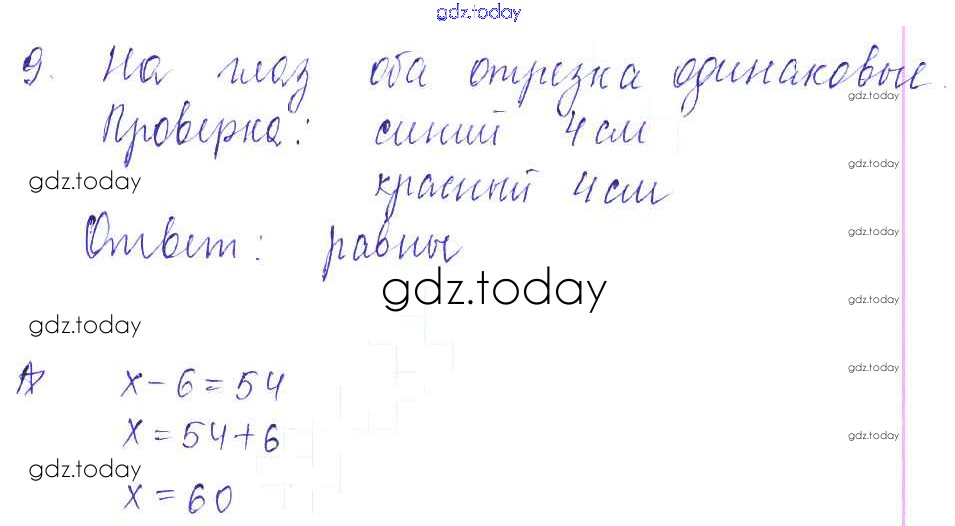 gdz.today
9. На глаз оба отрезка одинаковые.
gdz.today
Проверка: синий 4 см
gdz.today
gdz.today
красный 4 см
gdz.today
Ответ: равны
gdz.today
gdz.today
gdz.today
gdz.today
x - 6 = 54
x = 54 + 6
gdz.today
gdz.today
x = 60